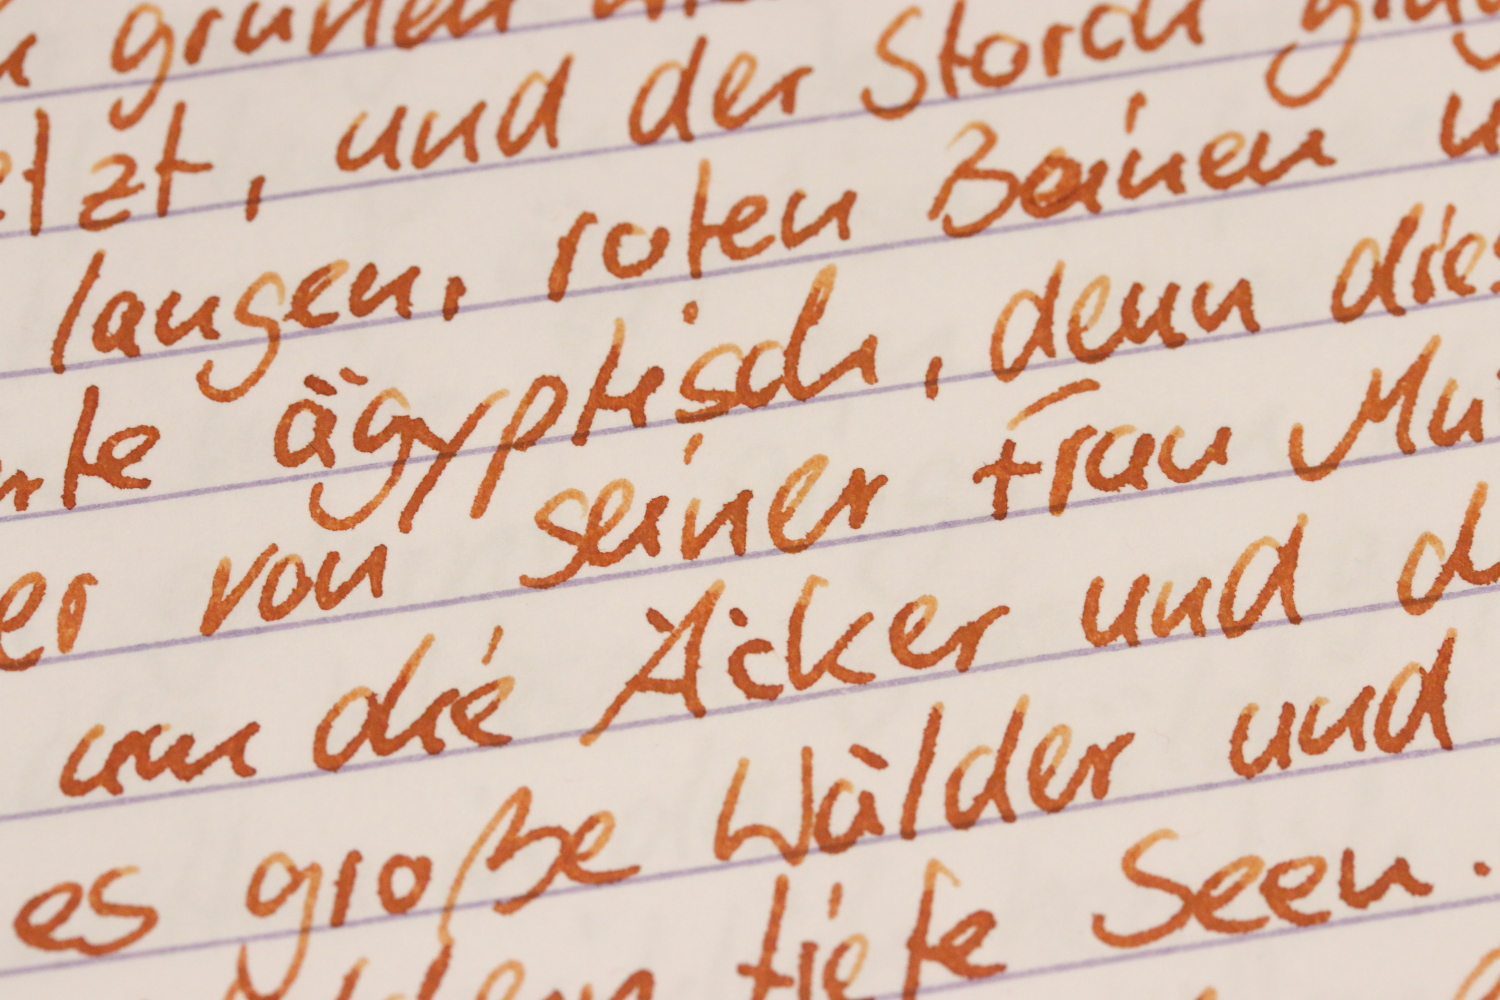 grünen
etzt, und der Storch ging
langen, roten Beinen u
rte ägyptisch, denn dies
er von seiner Frau Mu
um die Äcker und d
es große Wälder und
tiefe Seen.